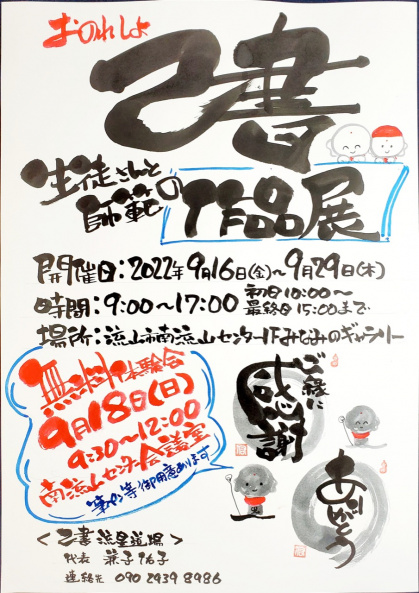 おのれしょ
己書
生徒さんと
師範の
作品展
開催日：2022年9月16日(金)～9月29日(木)
時間：9:00～17:00 初日10:00～
最終日15:00まで
場所：流山市南流山センター1Fみなみのギャラリー
無料体験会
9月18日(日)
9:30～12:00
南流山センター会議室
筆ペン等御用意あります
ご縁に
感謝
ありがとう
＜己書 流星道場＞
代表 兼子佑子
連絡先 090 2939 8986